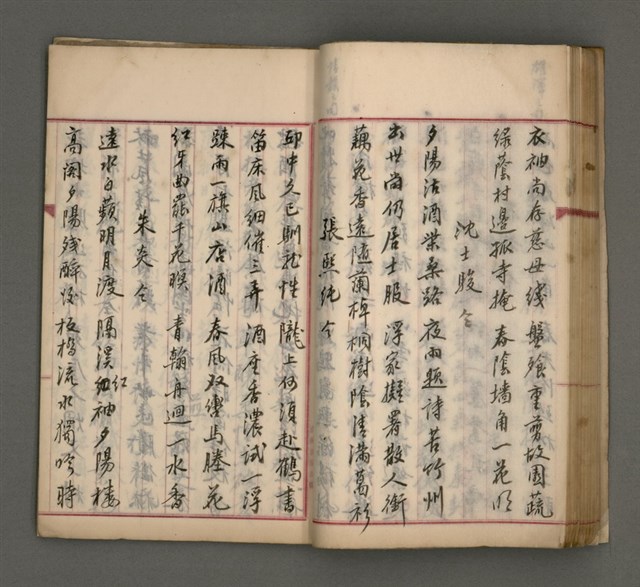 衣袖尚存慈母线 盤飱重剪故園蔬
綠蔭村邊孤寺掩 春陰墻角一花明
沈士駿 仝
夕陽沽酒柴桑路 夜雨題詩苦竹州
出世尚仍居士服 浮家擬署散人銜
藕花香遠隨蘭棹 桐樹陰清滿葛衫
張熙純 仝
邱中久已馴龍性 隴上何須赴鶴書
笛床風細催三弄 酒座香濃試一浮
踈雨一旗山店酒 春風双鬢馬塍花
紅牙曲罷千花睽 青翰舟迴一水香
朱炎 仝
遠水白蘋明月渡 隔溪紅袖夕陽樓
高閣夕陽残醉後 板橋流水獨吟時